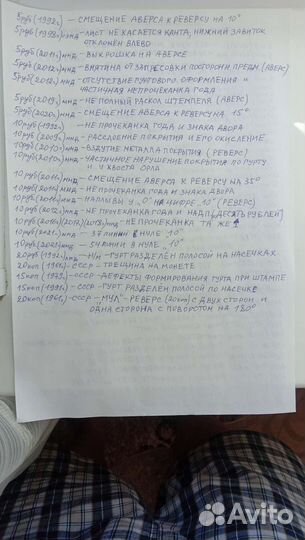 5руб(1992г) - СМЕЩЕНИЕ АВЕРСА К РЕВЕРСУ НА 10°
5руб(1998г) ммд - ЛИСТ НЕ КАСАЕТСЯ КАНТА, НИЖНИЙ ЗАВИТОК
ОТКЛОНЁН ВЛЕВО
5руб(2011г) ммд - ВЫКРОШКА НА АВЕРСЕ
5руб(2012г) ммд - ВМЯТИНА ОТ ЗАПРЕССОВКИ ПОСТОРОНН. ПРЕДМ. (АВЕРС)
5руб(2012г) ммд - ОТСУТСТВИЕ ГУРТОВОГО ОФОРМЛЕНИЯ И
ЧАСТИЧНАЯ НЕПРОЧЕКАНКА ГОДА
5руб(2019г) ммд - НЕ ПОЛНЫЙ РАСКОЛ ШТЕМПЕЛЯ (АВЕРС)
5руб(2020г) ммд - СМЕЩЕНИЕ АВЕРСА К РЕВЕРСУ НА 15°
10руб(1992г) - НЕ ПРОЧЕКАНКА ГОДА И ЗНАКА ДВОРА
10руб(2009г) ммд - РАССЛОЕНИЕ ПОКРЫТИЯ И ЕГО ОКИСЛЕНИЕ
10руб(2010г) ммд - ВЗДУТИЕ МЕТАЛЛА ПОКРЫТИЯ (РЕВЕРС)
10руб(2010г) ммд - ЧАСТИЧНОЕ НАРУШЕНИЕ ПОКРЫТИЯ ПО ГУРТУ
И У ХВОСТА ОРЛА
10руб(2011г) ммд - СМЕЩЕНИЕ АВЕРСА К РЕВЕРСУ НА 35°
10руб(2011г) ммд - НЕПРОЧЕКАНКА ГОДА И ЗНАКА ДВОРА
10руб(2011г) ммд - НАПЛЫВЫ У „О" НА ЦИФРЕ „10" (РЕВЕРС)
10руб(2012г) ммд - НЕ ПРОЧЕКАНКИ ГОДА И НАДП. (ДЕСЯТЬ РУБЛЕЙ)
10руб(2016г)(2017г)(2018г) ммд - НЕ ПРОЧЕКАНКИ ТА ЖЕ
10руб(2021г) ммд - 3 ЛИНИИ В НУЛЕ „10"
10руб(2021г) ммд - 5 ЛИНИИ В НУЛЕ „10"
20руб(1992г) лмд - Н/М - ГУРТ РАЗДЕЛЁН ПОЛОСОЙ НА НАСЕЧКАХ
20коп(1961г) - СССР - ТРЕЩИНА НА МОНЕТЕ
15коп - СССР - ДЕФЕКТЫ ФОРМИРОВАНИЯ ГУРТА ПРИ ШТАМПЕ
15коп(1991г) - СССР - ГУРТ РАЗДЕЛЁН ПОЛОСОЙ ПО НАСЕЧКЕ
20коп(1961г) - СССР - „МУЛ" - РЕВЕРС (20коп) С ДВУХ СТОРОН И
ОДНА СТОРОНА С ПОВОРОТОМ НА 180°
Avito